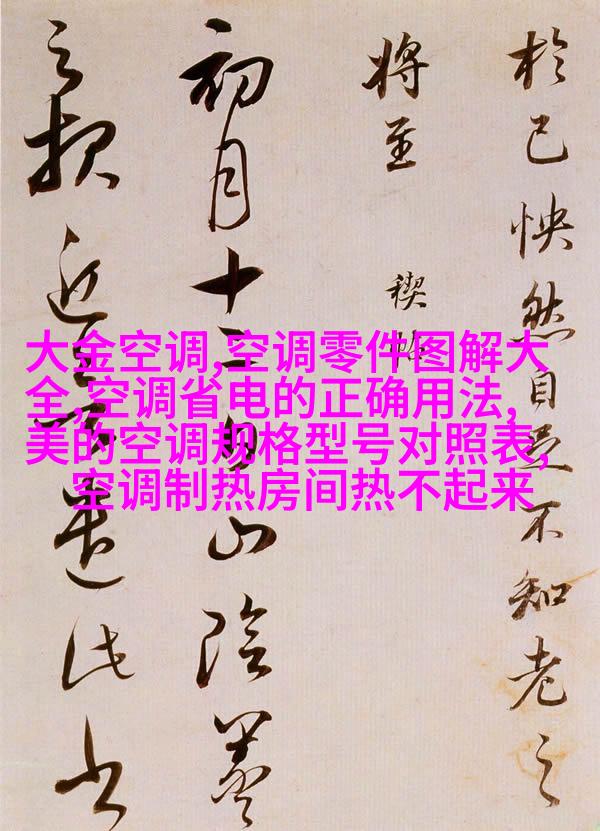 於己怏然自足不知老之
将至
禊帖
初月十二日山陰羲
之报近遣此书
大金空调,空调零件图解大
全,空调省电的正确用法,
美的空调规格型号对照表,
空调制热房间热不起来